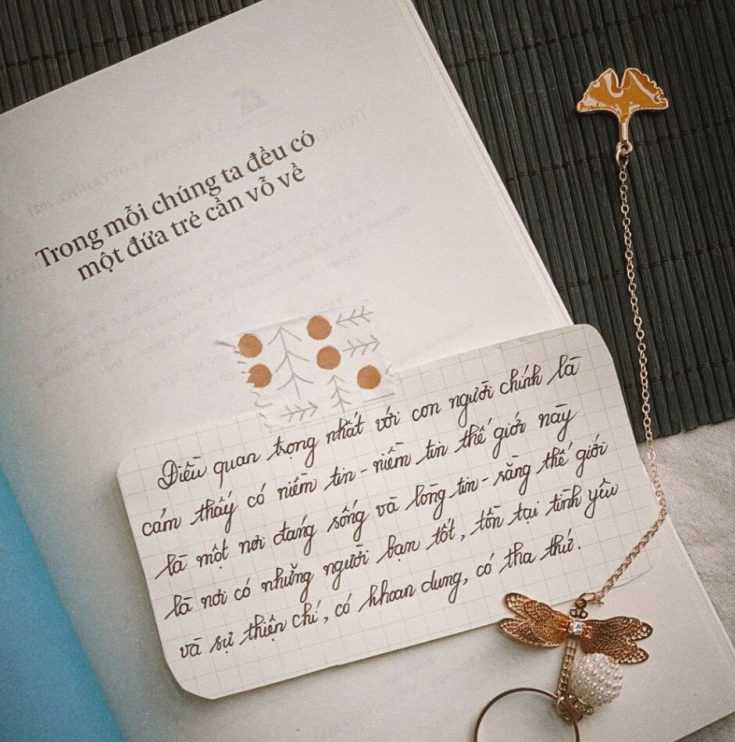 Trong mỗi chúng ta đều có
một đứa trẻ cần vỗ về
Điều quan trọng nhất với con người chính là
cảm thấy có niềm tin - niềm tin thế giới này
là một nơi đáng sống và lòng tin - rằng thế giới
là nơi có những người bạn tốt, tồn tại tình yêu
và sự thiện chí, có khoan dung, có tha thứ.